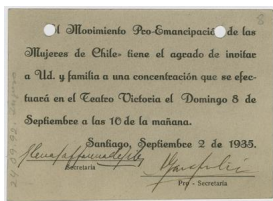 El Movimiento Pro-Emancipación de las
Mujeres de Chile» tiene el agrado de invitar
a Ud. y familia a una concentración que se efec-
tuará en el Teatro Victoria el Domingo 8 de
Septiembre a las 10 de la mañana.
Santiago, Septiembre 2 de 1935.
Secretaria
Pro - Secretaria